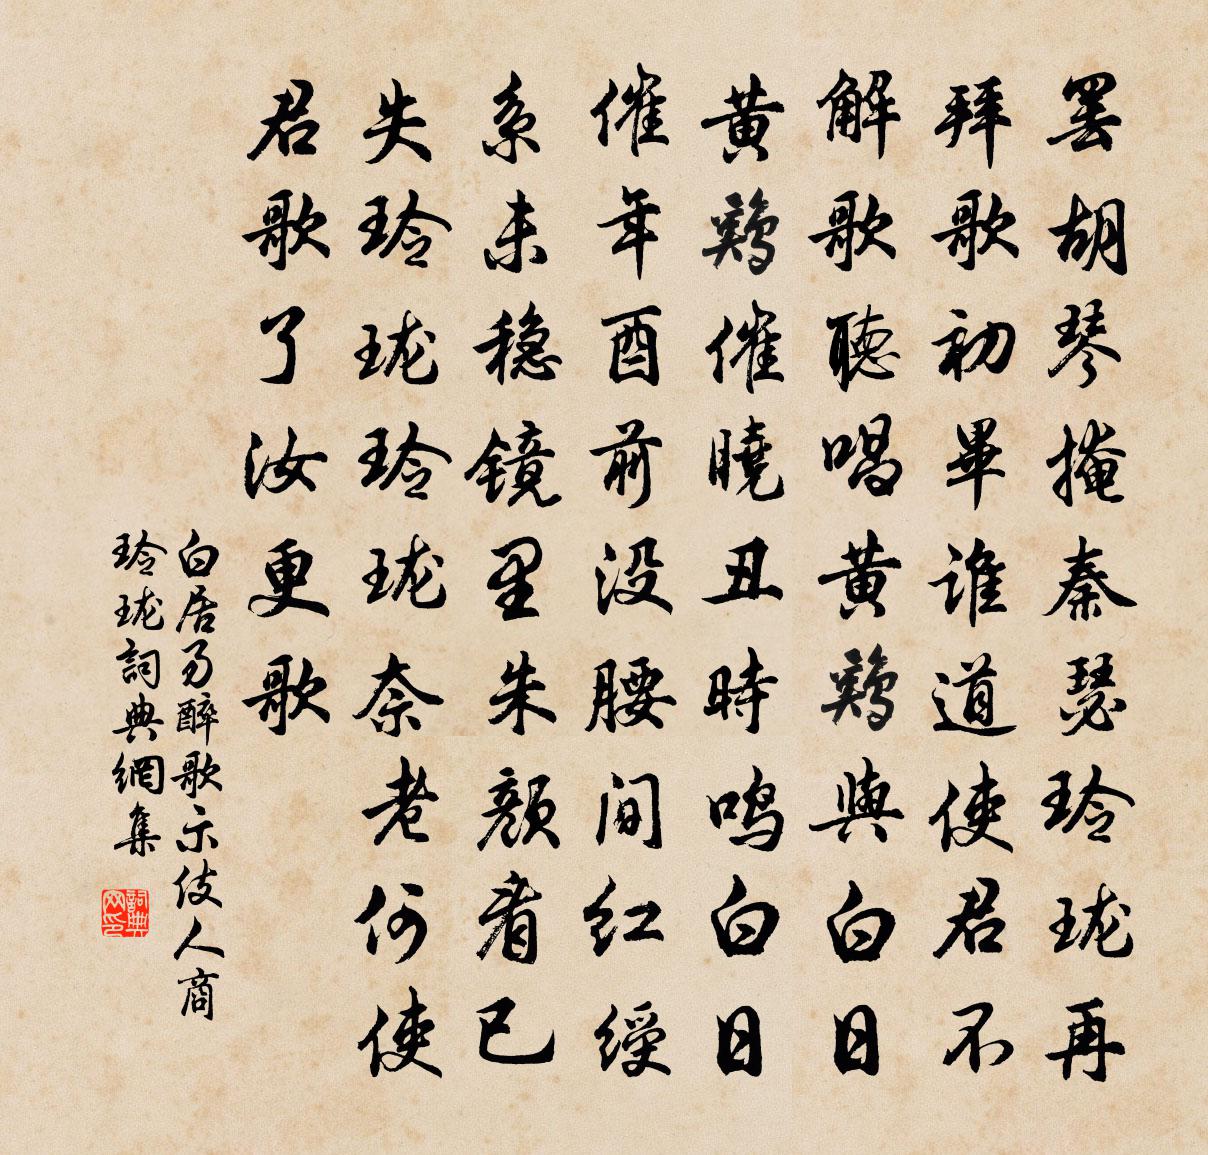 罢胡琴掩秦瑟玲珑再
拜歌初畢谁道使君不
解歌聴唱黄鷄與白日
黄鷄催曉丑時鸣白日
催年酉前没腰间红綬
系未稳镜里朱颜看已
失玲珑玲珑奈老何使
君歌了汝更歌
白居易醉歌示伎人商
玲珑詞典網集
詞典网印